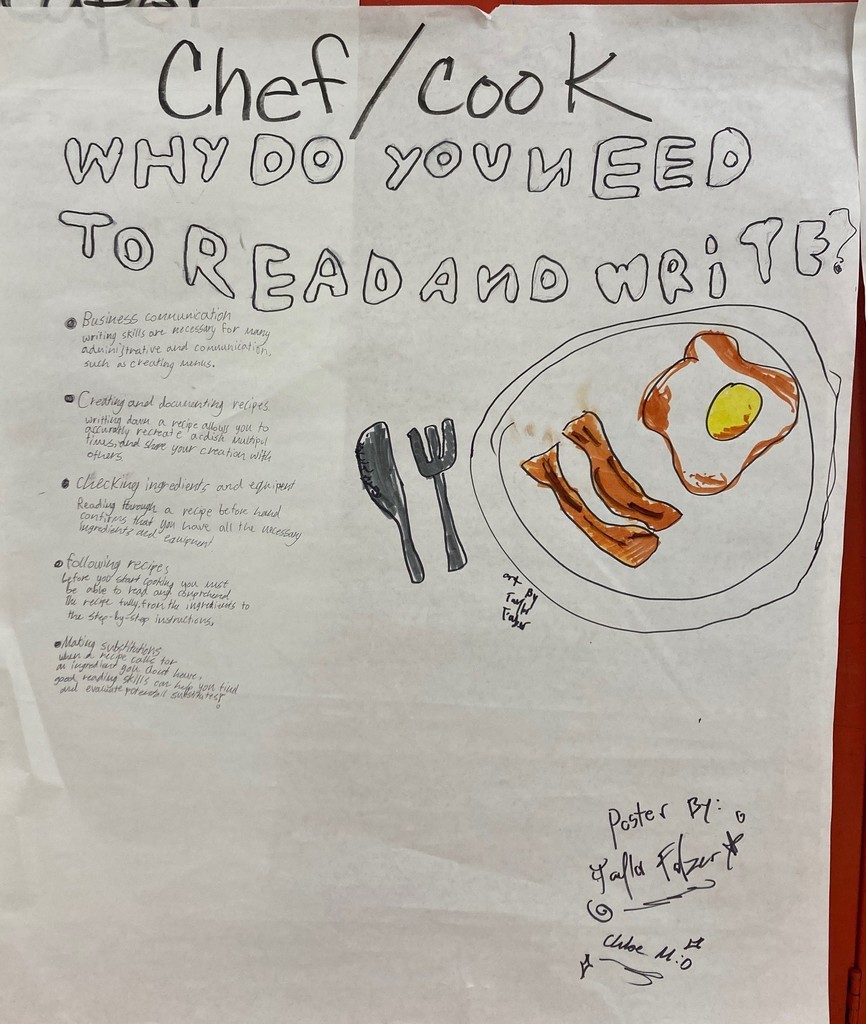 Chef/Cook
WHY DO YOU NEED
TO READ AND WRiTE?
Business communication
writing skills are necessary for many
administrative and communication,
such as creating menus.
Creating and documenting recipes
writting down a recipe allows you to
accuratly recreate a dish multipul
times, and share your creation with
others
checking ingredients and equipent
Reading through a recipe before hand
confirms that you have all the necessary
ingredients and equipment
following recipes
before you start cooking you must
be able to read and comprehend
the recipe fully, from the ingredients to
the step-by-step instructions.
Making substitutions
when a recipe calls for
an ingredient you dont have,
good reading skills can help you find
and evaluate potential substitutes!
art By
Taylor
Poster By:
Chloe M:D